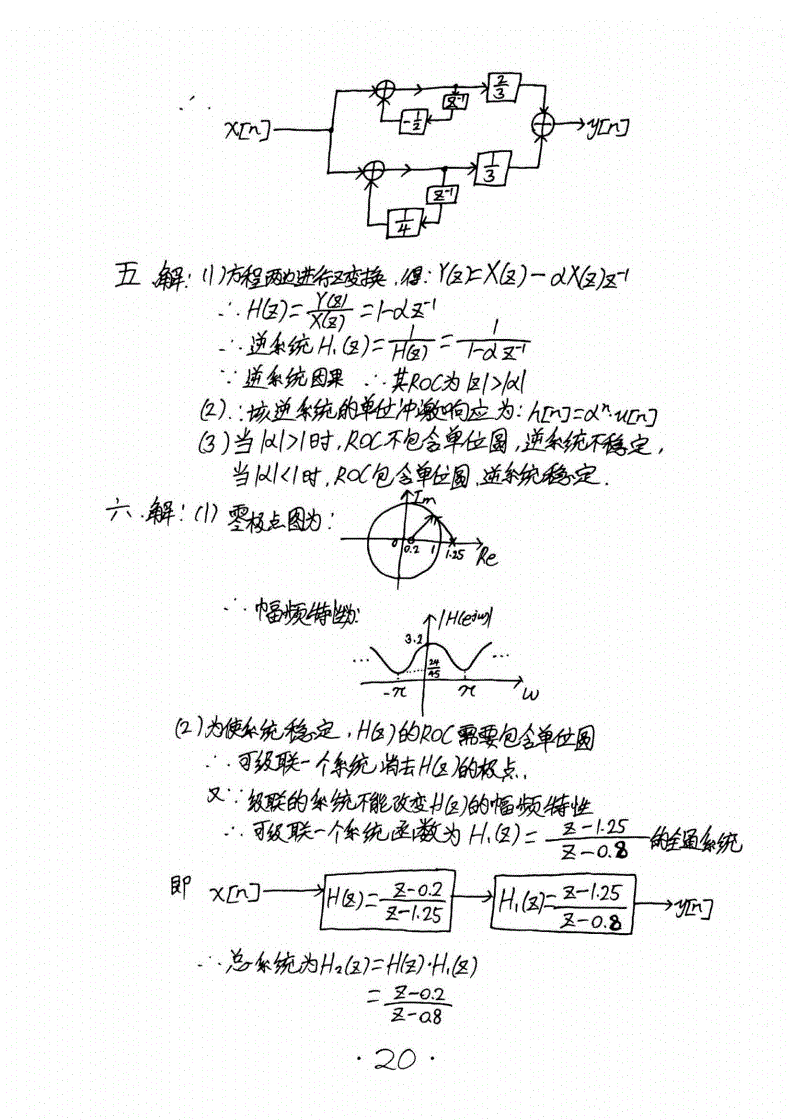 ∴
x[n] ⊕ z⁻¹ 2/3 -1/2 ⊕ y[n]
⊕ z⁻¹ 1/3 1/4
五 解: (1)方程两边进行Z变换,得: Y(z)=X(z)-αX(z)z⁻¹
∴ H(z)=Y(z)/X(z)=1-αz⁻¹
∴ 逆系统 H₁(z)=1/H(z)=1/(1-αz⁻¹)
∵ 逆系统因果 ∴ 其ROC为 |z|>|α|
(2) ∴该逆系统的单位冲激响应为: h[n]=αⁿ·u[n]
(3)当|α|>1时,ROC不包含单位圆,逆系统不稳定,
当|α|<1时,ROC包含单位圆,逆系统稳定.
六.解: (1) 零极点图为:
Im
0 0.2 1 1.25 Re
∴ 幅频特性为:
|H(e^jω)|
3.2
… 24/45 …
-π π ω
(2)为使系统稳定,H(z)的ROC需要包含单位圆
∴ 可级联一个系统消去H(z)的极点.
又∵ 级联的系统不能改变H(z)的幅频特性
∴ 可级联一个系统函数为 H₁(z)=(z-1.25)/(z-0.8) 的全通系统
即 x[n] H(z)=(z-0.2)/(z-1.25) H₁(z)=(z-1.25)/(z-0.8) y[n]
∴ 总系统为H₂(z)=H(z)·H₁(z)
=(z-0.2)/(z-0.8)
·20·